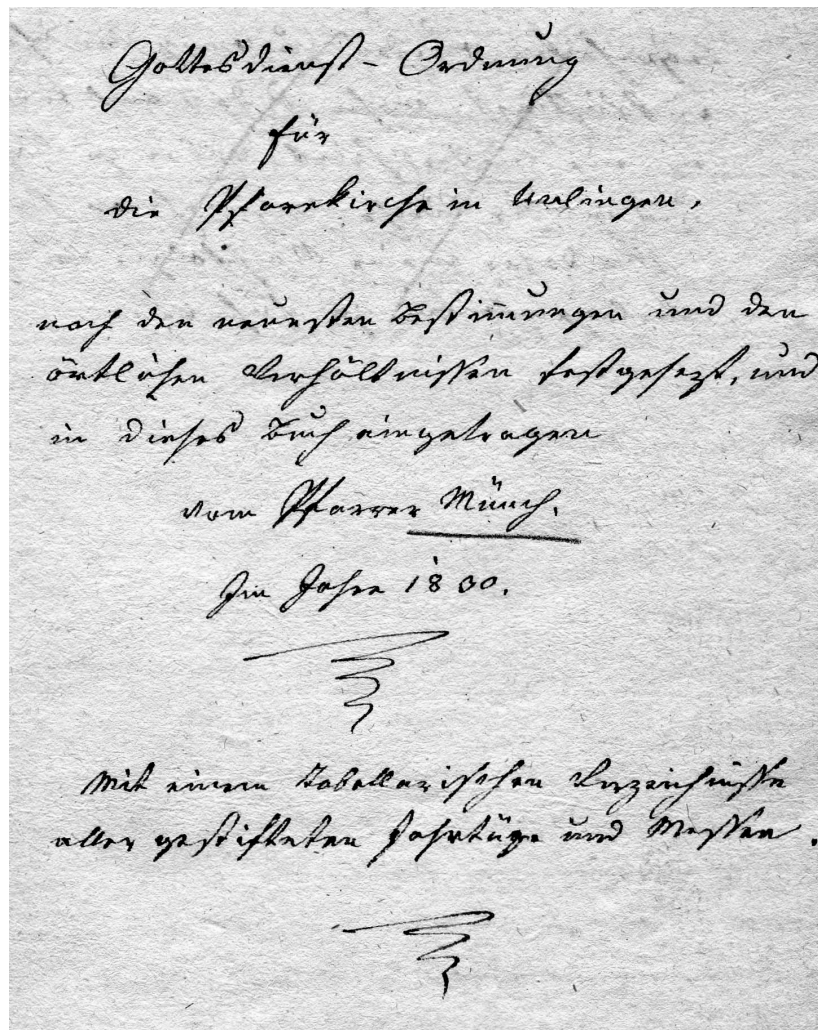 Gottesdienst - Ordnung
für
die Pfarrkirche in Unlingen,
nach den neuesten Bestim̅ungen und den
örtlichen Verhältnissen festgesezt, und
in dieses Buch eingetragen
vom Pfarrer Münch.
Im Jahre 1830.
Mit einem Tabellarischen Verzeichnisse
aller gestifteten Jahrtäge und Messen.